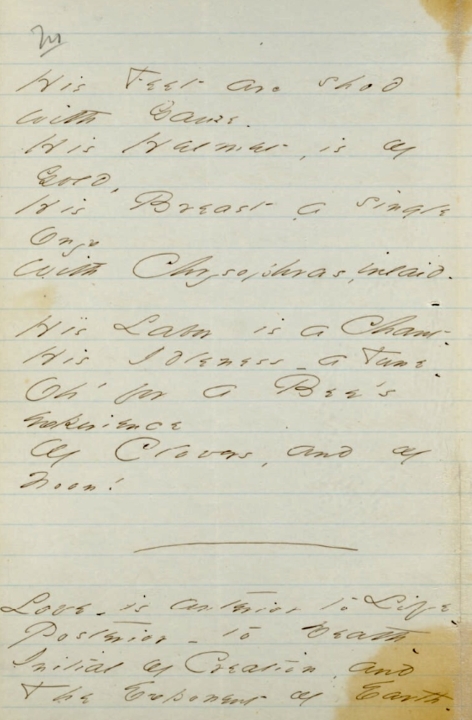 His Feet are shod
with Gauze -
His Helmet, is of
Gold,
His Breast, a single
Onyx
With Chrysophras, inlaid.
His Labor is a Chant -
His Idleness - a Tune -
Oh, for a Bee's
experience
Of Clovers, and of
Noon!
Love - is anterior to Life -
Posterior - to Death -
Initial of Creation, and
The Exponent of Earth.